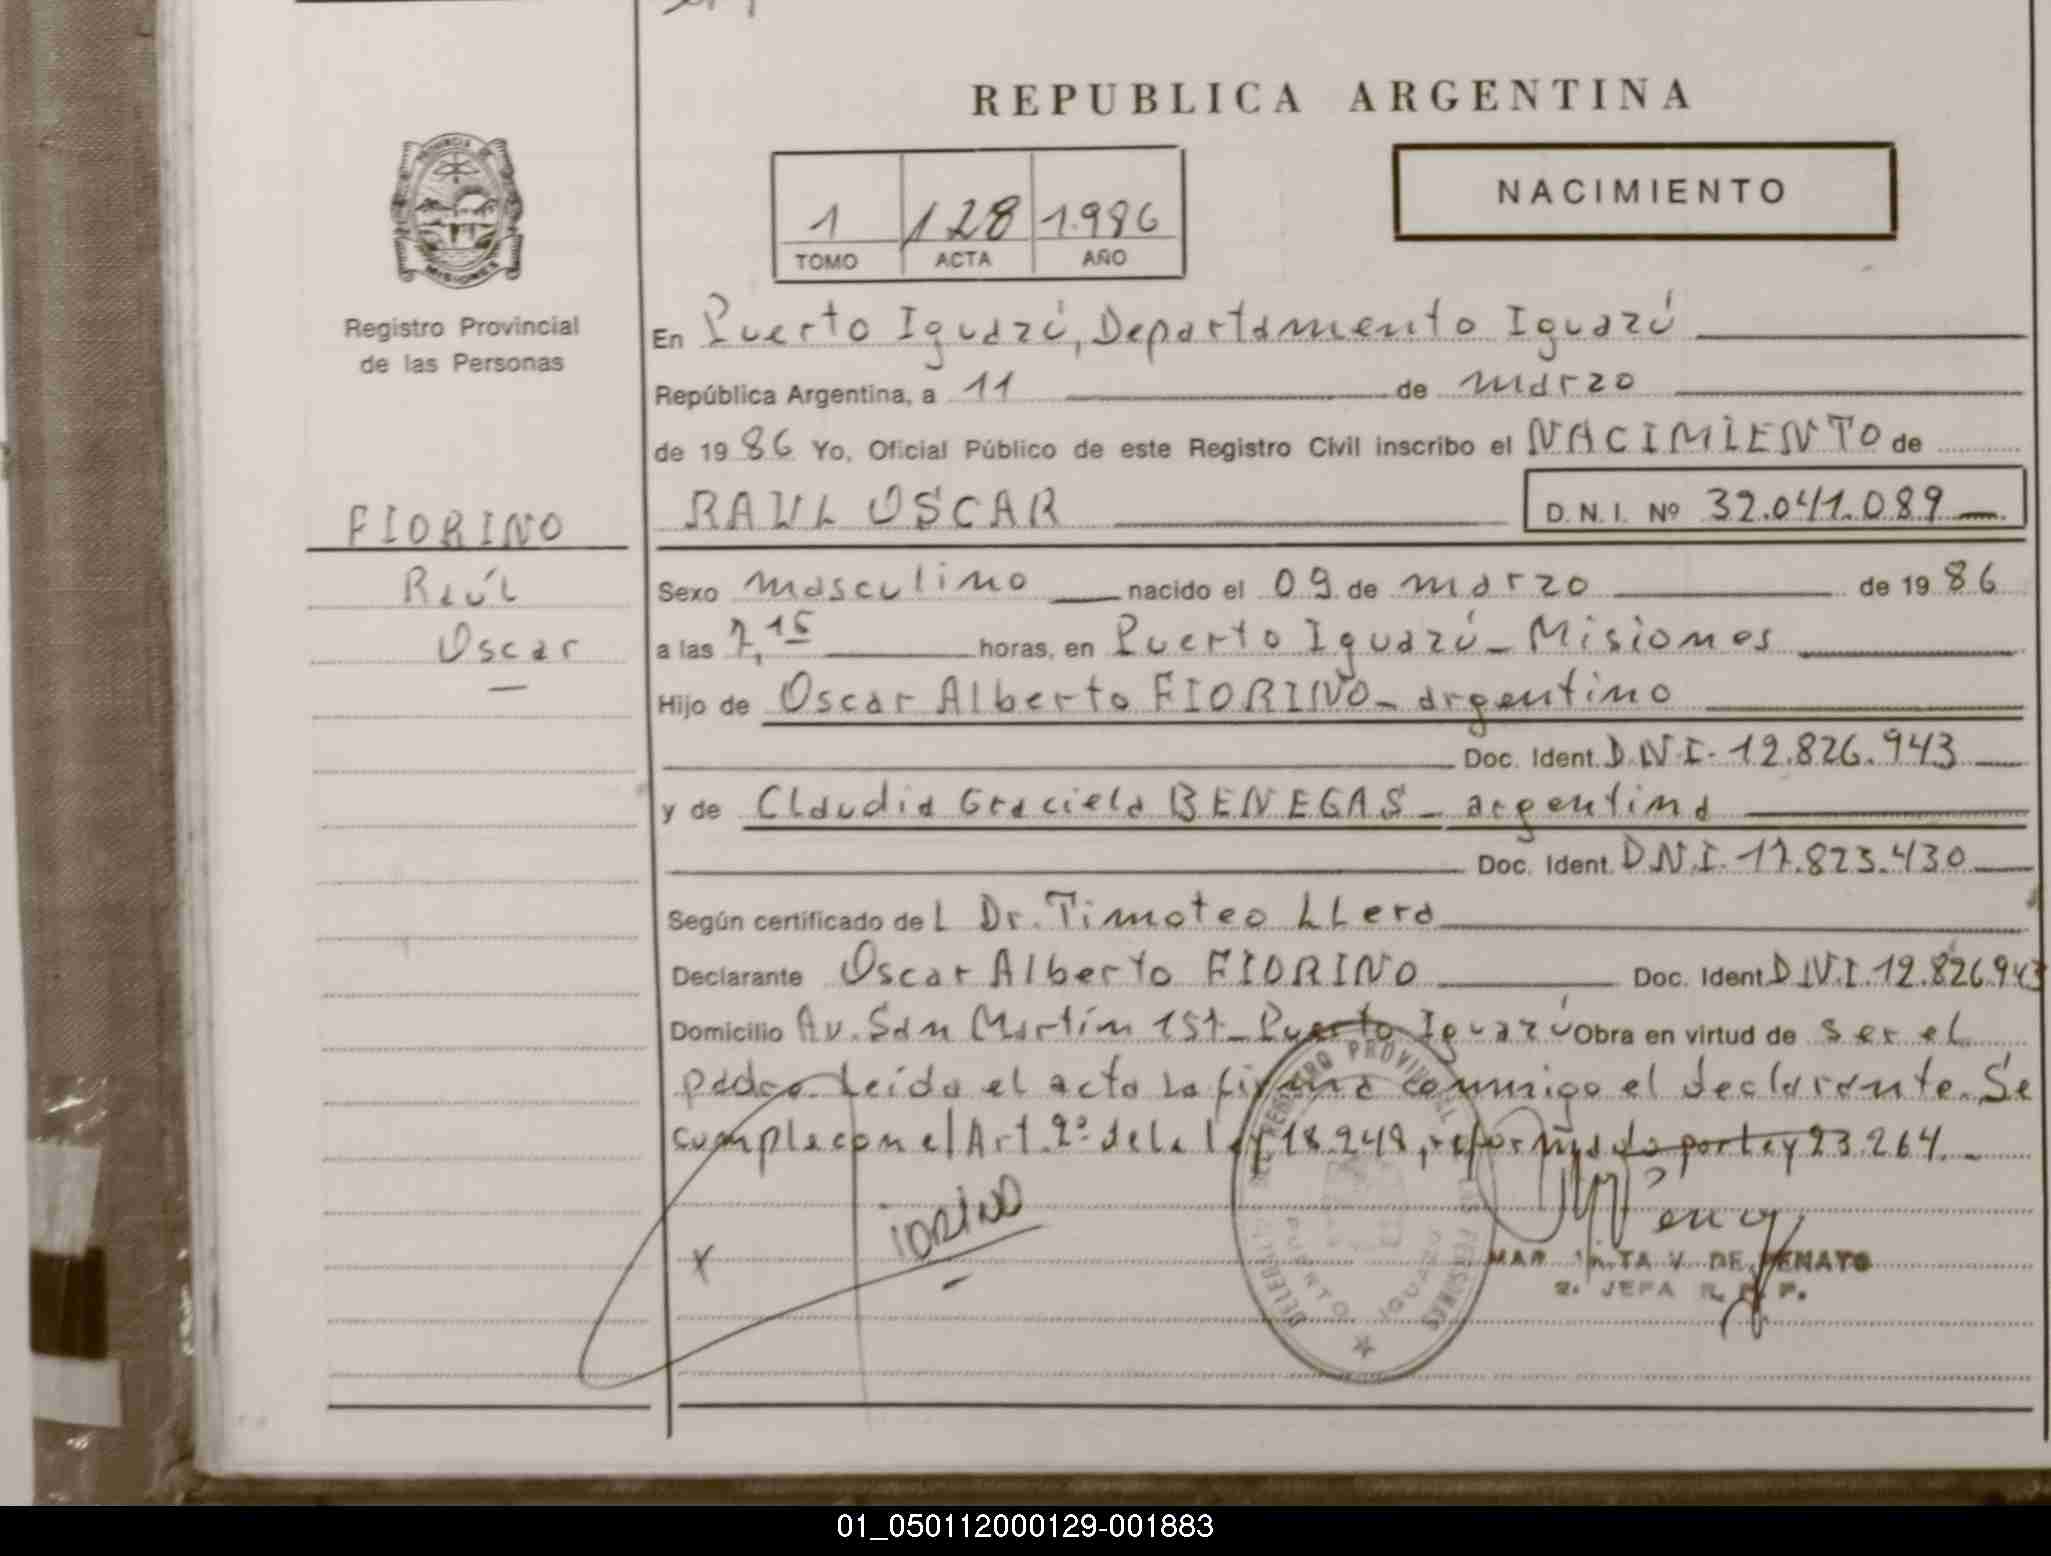 REPUBLICA ARGENTINA
NACIMIENTO
1 128 1.986
TOMO ACTA AÑO
PROVINCIA DE
MISIONES
Registro Provincial
de las Personas
FIORINO
Raúl
Oscar
En Puerto Iguazú, Departamento Iguazú
República Argentina, a 11 de marzo
de 1986 Yo, Oficial Público de este Registro Civil inscribo el NACIMIENTO de
RAUL OSCAR D.N.I. Nº 32.041.089
Sexo masculino nacido el 09 de marzo de 1986
a las 7,15 horas, en Puerto Iguazú - Misiones
Hijo de Oscar Alberto FIORINO - argentino
Doc. Ident. D.N.I. 12.826.943
y de Claudia Graciela BENEGAS - argentina
Doc. Ident. D.N.I. 17.823.430
Según certificado del Dr. Timoteo LLera
Declarante Oscar Alberto FIORINO Doc. Ident. D.N.I. 12.826.943
Domicilio Av. San Martín 157 - Puerto Iguazú Obra en virtud de ser el
padre. Leída el acta la firma conmigo el declarante. Se
cumple con el Art. 2º de la ley 18.248, reformado por Ley 23.264. -
REGISTRO PROVINCIAL
DE LAS PERSONAS
PUERTO IGUAZU
V. DE PENATO
2. JEFA R. P. P.
01_050112000129-001883